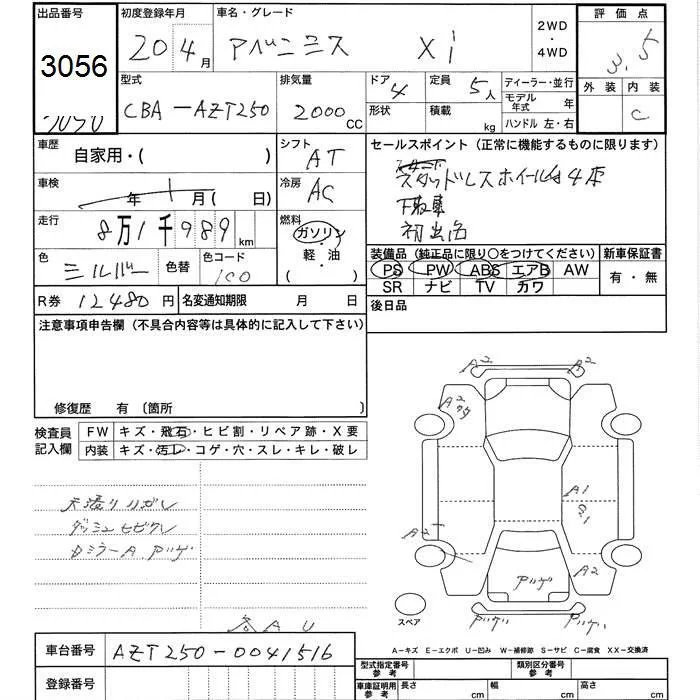 出品番号 初度登録年月 車名・グレード 2WD ・ 4WD 評価点
3056 20 4月 アベンシス Xi 3.5
型式 排気量 ドア 4 定員 5人 ディーラー・並行 外装 内装
CBA-AZT250 2000 CC 形状 積載 kg モデル年式 年 C
ハンドル 左・右
車歴 自家用・( ) シフト AT セールスポイント(正常に機能するものに限ります)
車検 年 1月( 日) 冷房 AC スタッドレスホイル付4本
下取車
走行 8万1千989km 燃料 ガソリン・軽・油 初出品
装備品(純正品に限り○をつけてください) 新車保証書
色 シルバー 色替 色コード 1C0 PS PW ABS エアB AW 有・無
SR ナビ TV カワ
R券 12480円 名変通知期限 月 日 後日品
注意事項申告欄(不具合内容等は具体的に記入して下さい)
修復歴 有〔箇所 〕
検査員記入欄 FW キズ・飛石・ヒビ割・リペア跡・X要
内装 キズ・汚レ・コゲ・穴・スレ・キレ・破レ
A2 A2
A2
A1
A2
A2
スペア
各AU
A-キズ E-エクボ U-凹み W-補修跡 S-サビ C-腐食 XX-交換済
車台番号 AZT250-0041516 型式指定番号 参考 類別区分番号 参考
登録番号 車庫証明用 参考 長さ cm 幅 cm 高さ cm